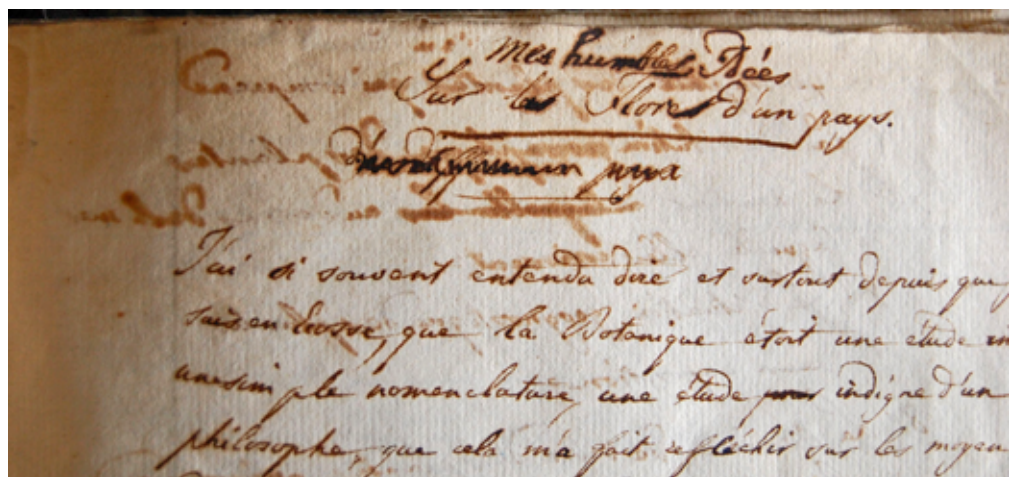 mes humbles Idées
Sur les Flores d'un pays.
pays
J'ai si souvent entendu dire et surtout depuis que j
suis en Ecosse, que la Botanique étoit une étude in
une simple nomenclature, une étude indigne d'un
philosophe, que cela m'a fait réfléchir sur les moyen